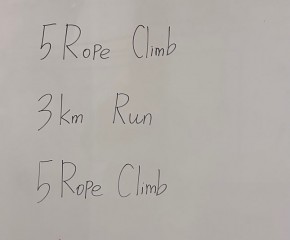 5 Rope Climb
3km Run
5 Rope Climb